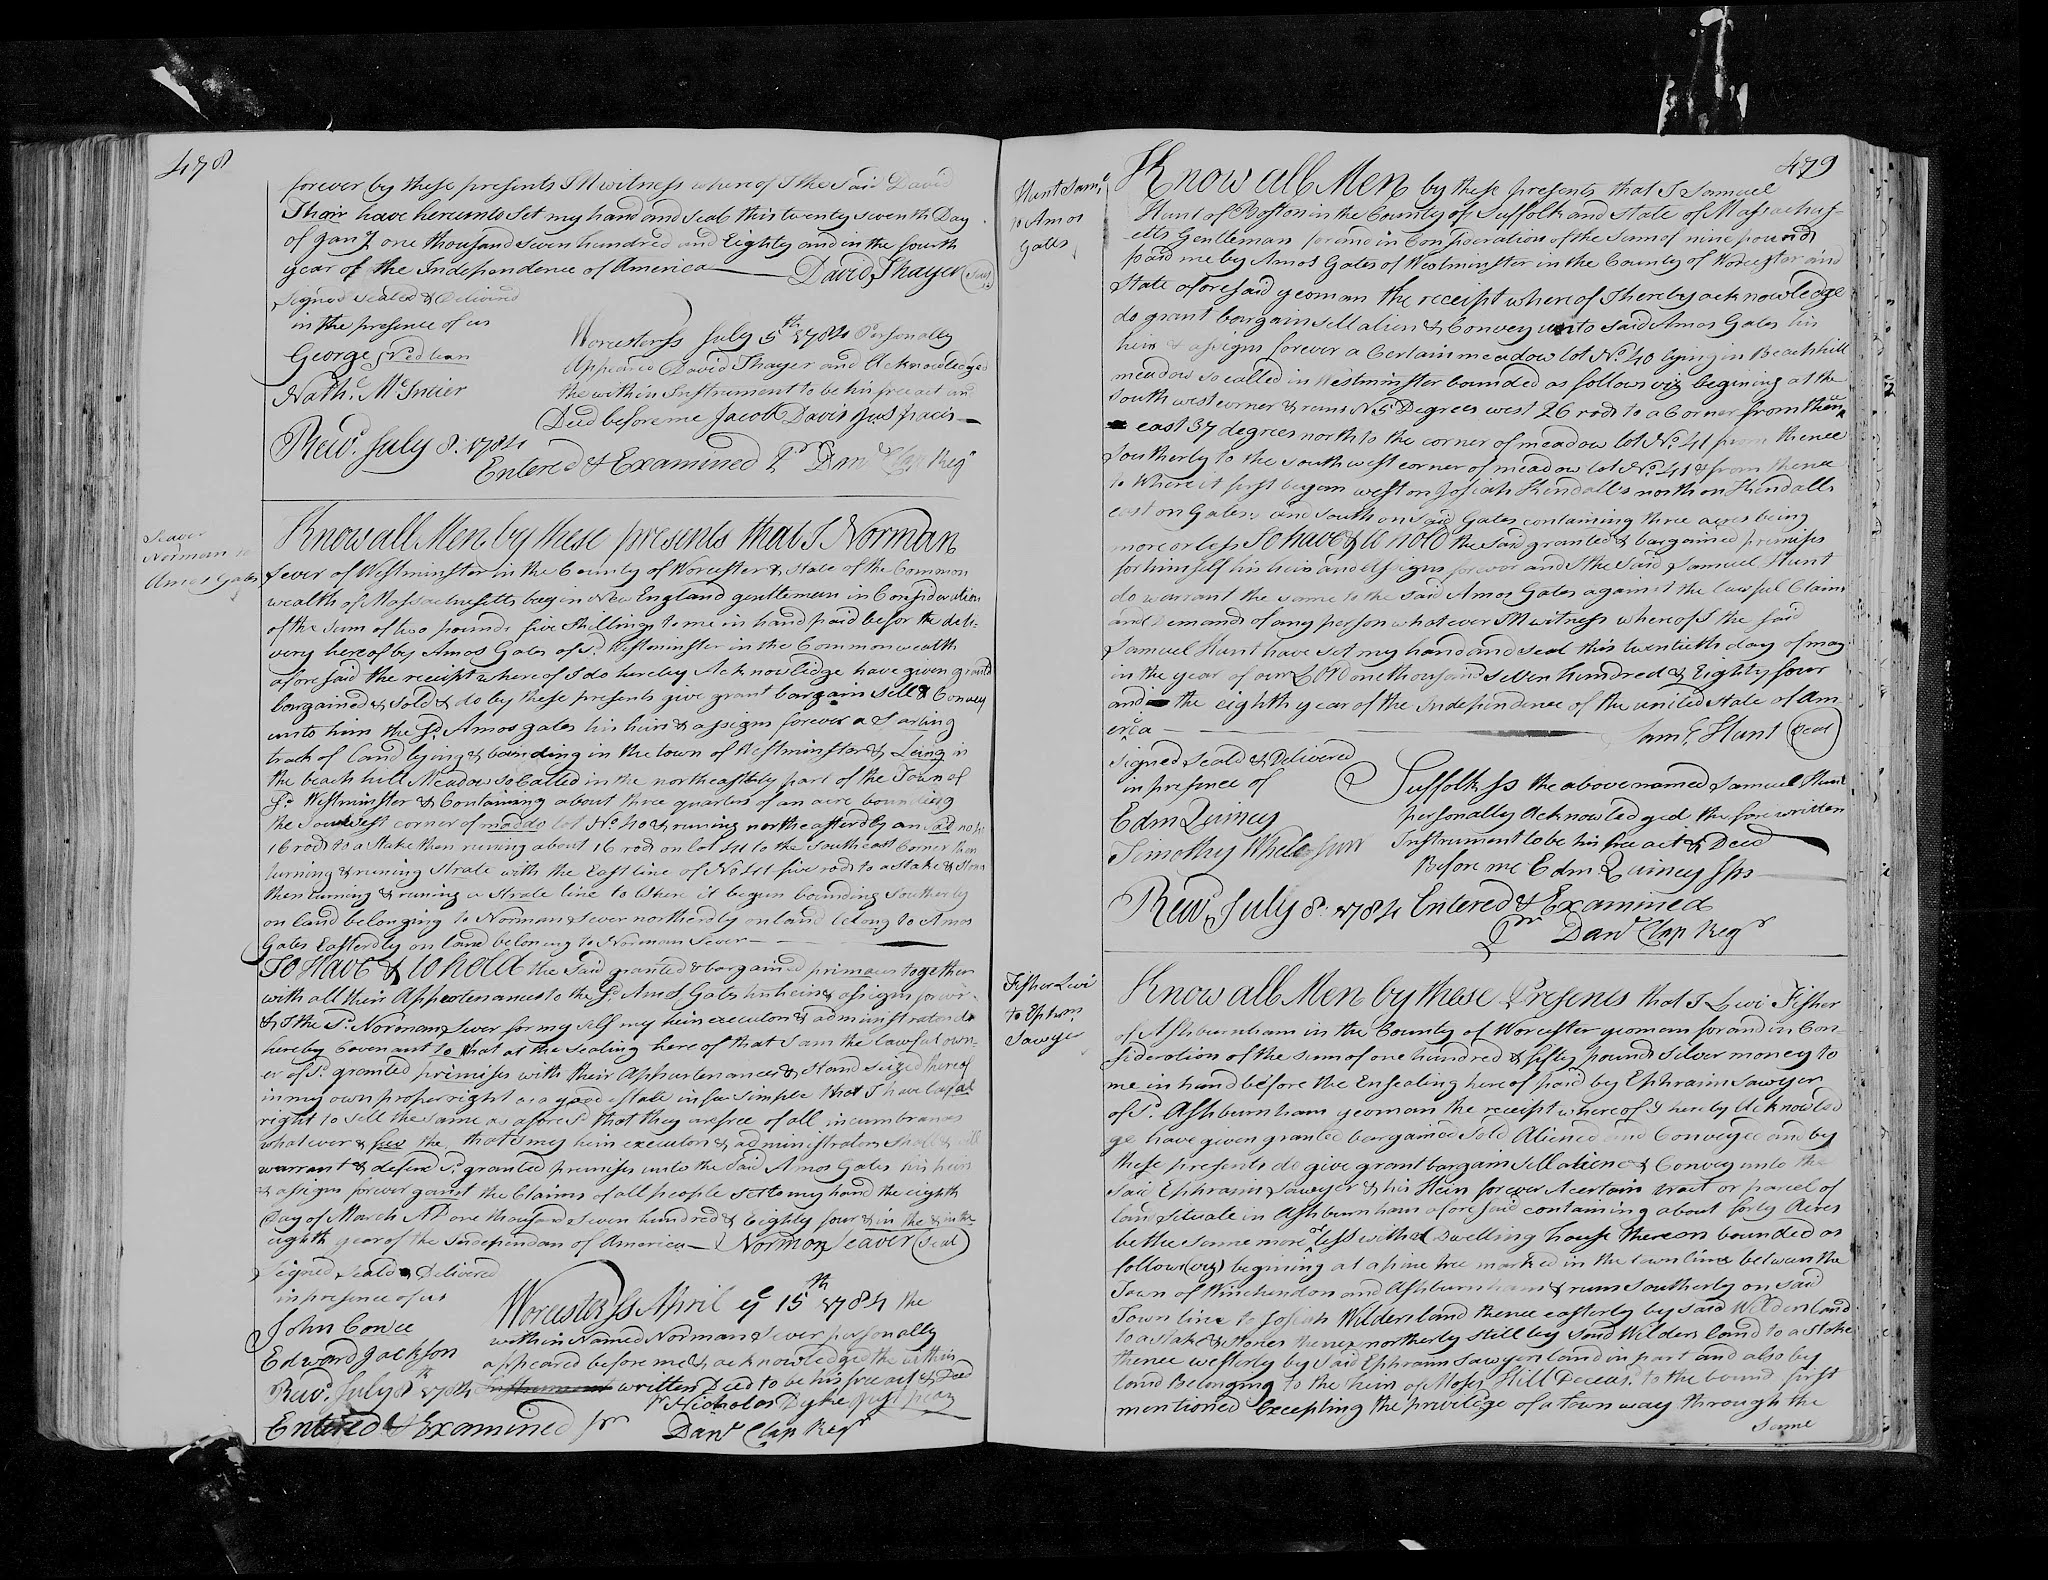 478
forever by these presents In witness whereof I the said David
Thair have hereunto Set my hand and seal this twenty seventh Day
of Jany one thousand seven hundred and Eighty and in the fourth
year of the Independence of America David Thayer (Seal)
Signed sealed & Delivered
in the presence of us
George
Nathl. Mc
Worcester ss July 5th 1784 Personally
Appeared David Thayer and Acknowledged
the within Instrument to be his free act and
Deed before me Jacob Davis Jus Pacis
Recd. July 8. 1784
Entered & Examined Pr Danl Clap Regr
Seaver
Norman to
Amos Gates
Know all Men by these presents that I Norman
Sever of Westminster in the County of Worcester & State of the Common
wealth of Massachusetts bay in New England gentleman in Consideration
of the Sum of two pounds five Shillings to me in hand paid befor the deli-
very hereof by Amos Gates of Sd. Westminster in the Commonwealth
afore said the receipt where of I do hereby Acknowledge have given granted
bargained & sold & do by these presents give grant bargain sell & Convey
unto him the Sd Amos gates his heirs & assigns forever a Sarting
track of land lying & bounding in the town of Westminster & Leing in
the beach hill Meadow so Called in the northeasterly part of the Town of
Sd Westminster & Containing about three quarters of an acre bounding
the Southwest corner of maddo lot No. 40 & runing northeasterdly on
16 rods to a stake then runing about 16 rods on lot 41 to the Southeast Corner then
turning & runing strate with the East line of No 41 five rods to a stake & stons
then turning & runing a strate line to Where it begun bounding Southerly
on land belonging to Norman Sever northerdly on land belong to Amos
Gates Easterdly on land beloning to Norman Sever
To Have & to hold the said granted & bargained primaces together
with all their Appertenances to the Sd Amos Gates his heirs & assigns forevir
& I the Sd. Norman Sever for my self my heirs executors & administrators do
hereby Covenant to that at the Sealing here of that I am the lawful own-
er of Sd. granted primises with their Appurtenances & Stand seized thereof
in my own proper right as a good estate in fee simple that I have lawful
right to sell the same as afore Sd that they are free of all incumbrances
what ever & the that I my heirs executors & administrators shall & will
warrant & defend Sd granted premises unto the said Amos Gates his heirs
& assigns forever ganst the Claims of all people set to my hand the eighth
Day of March AD one thousand Seven hundred & Eighty four & in the & in the
eighth year of the Independan of America Norman Seaver (Seal)
Signed Seald & Delivered
in presence of us
John Conee
Edward Jackson
Worcester ss April ye 15th 1784 the
within Named Norman Sever personally
appeared before me & acknowledged the within
written Deed to be his free act & Deed
Pr Nicholas Dyke Just peace
Recd. July 8th 1784
Entered & Examined pr Danl Clap Regr
479
Hunt Saml
to Amos
Gates
Know all Men by these presents that I Samuel
Hunt of Boston in the County of Suffolk and State of Massachus-
etts Gentleman for and in Consideration of the Sum of nine pounds
paid me by Amos Gates of Westminster in the County of Worcester and
State aforesaid yeoman the receipt where of I hereby acknowledge
do grant bargain sell alien & Convey unto said Amos Gates his
heirs & assigns forever a Certain meadow lot No. 40 lying in Beach hill
meadow so called in Westminster bounded as follows viz begining at the
South west corner & runs N 5 Degrees west 26 rods to a Corner from thence
east 37 degrees north to the corner of meadow lot No. 41 from thence
Southerly to the southwest corner of meadow lot No. 41 & from thence
to Where it first began west on Josiah Kendalls north on Kendalls
east on Gates and south on said Gates containing three acres being
more or less To have & to hold the said granted & bargained premises
for himself his heirs and assigns forever and I the said Samuel Hunt
do warrant the same to the said Amos Gates against the lawful Claims
and Demands of any person what ever In witness whereof I the said
Samuel Hunt have set my hand and seal this twentieth day of may
in the year of our Lord one thousand seven hundred & Eighty four
and the eighth year of the Independence of the united State of Am
erica
Saml. Hunt (Seal)
Signed Seald & Delivered
in presence of
Edm Quincy
Timothy
Suffolk ss the above named Samuel Hunt
personally Acknowledged the fore written
Instrument to be his free act & Deed
Before me Edm. Quincy Jps
Recd. July 8th 1784 Entered & Examined
Pr Danl Clap Regr
Fisher Levi
to Ephm
Sawyer
Know all Men by these Presents that I Levi Fisher
of Ashburnham in the County of Worcester yeoman for and in Con-
sideration of the sum of one hundred & fifty pounds silver money to
me in hand before the Ensealing here of paid by Ephraim Sawyer
of Sd. Ashburnham yeoman the receipt where of I hereby Acknowled
ge have given granted bargained Sold Aliened and Conveyed and by
these presents do give grant bargain sell aliene & Convey unto the
said Ephraim Sawyer & his Heirs forever A certain tract or parcel of
land situate in Ashburnham afore said containing about forty Acres
be the same more or less with a Dwelling house thereon bounded as
follows (viz) begining at a pine tree marked in the town line between the
Town of Winchendon and Ashburnham & runs southerly on said
Town line to Josiah Wilders land thence easterly by said Wilders land
to a stake & stones thence northerly still by said Wilders land to a stake
thence westerly by said Ephraim Sawyers land in part and also by
land Belonging to the heirs of Moses Hill Deceas. to the bound first
mentioned Excepting the privilege of a town way through the
Same